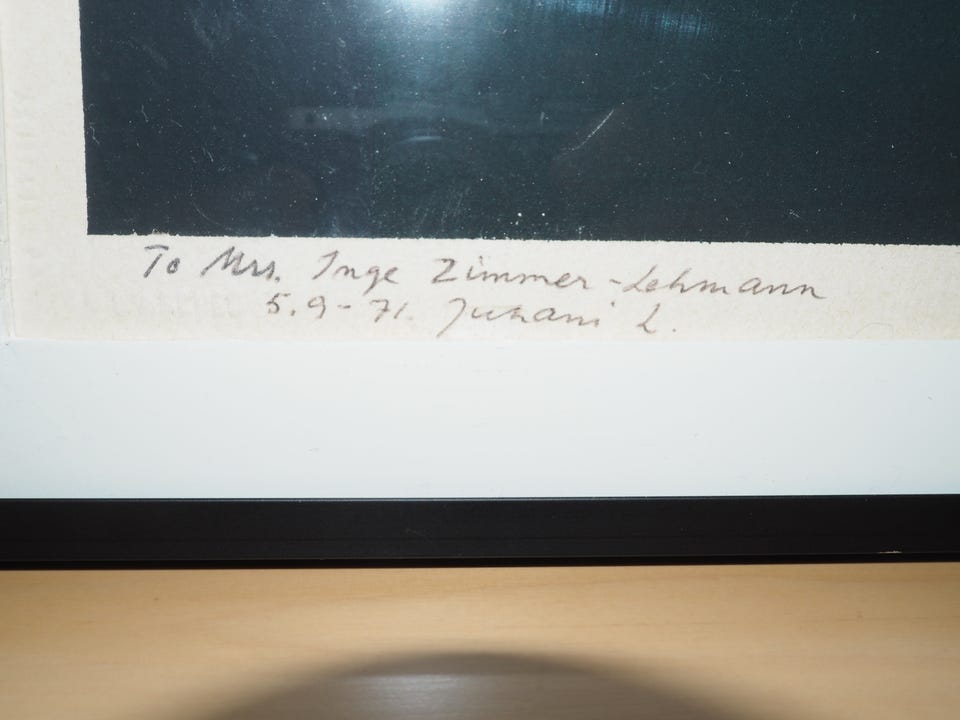 To Mrs. Inge Zimmer-Lehmann
5.9-71. Juhani L.